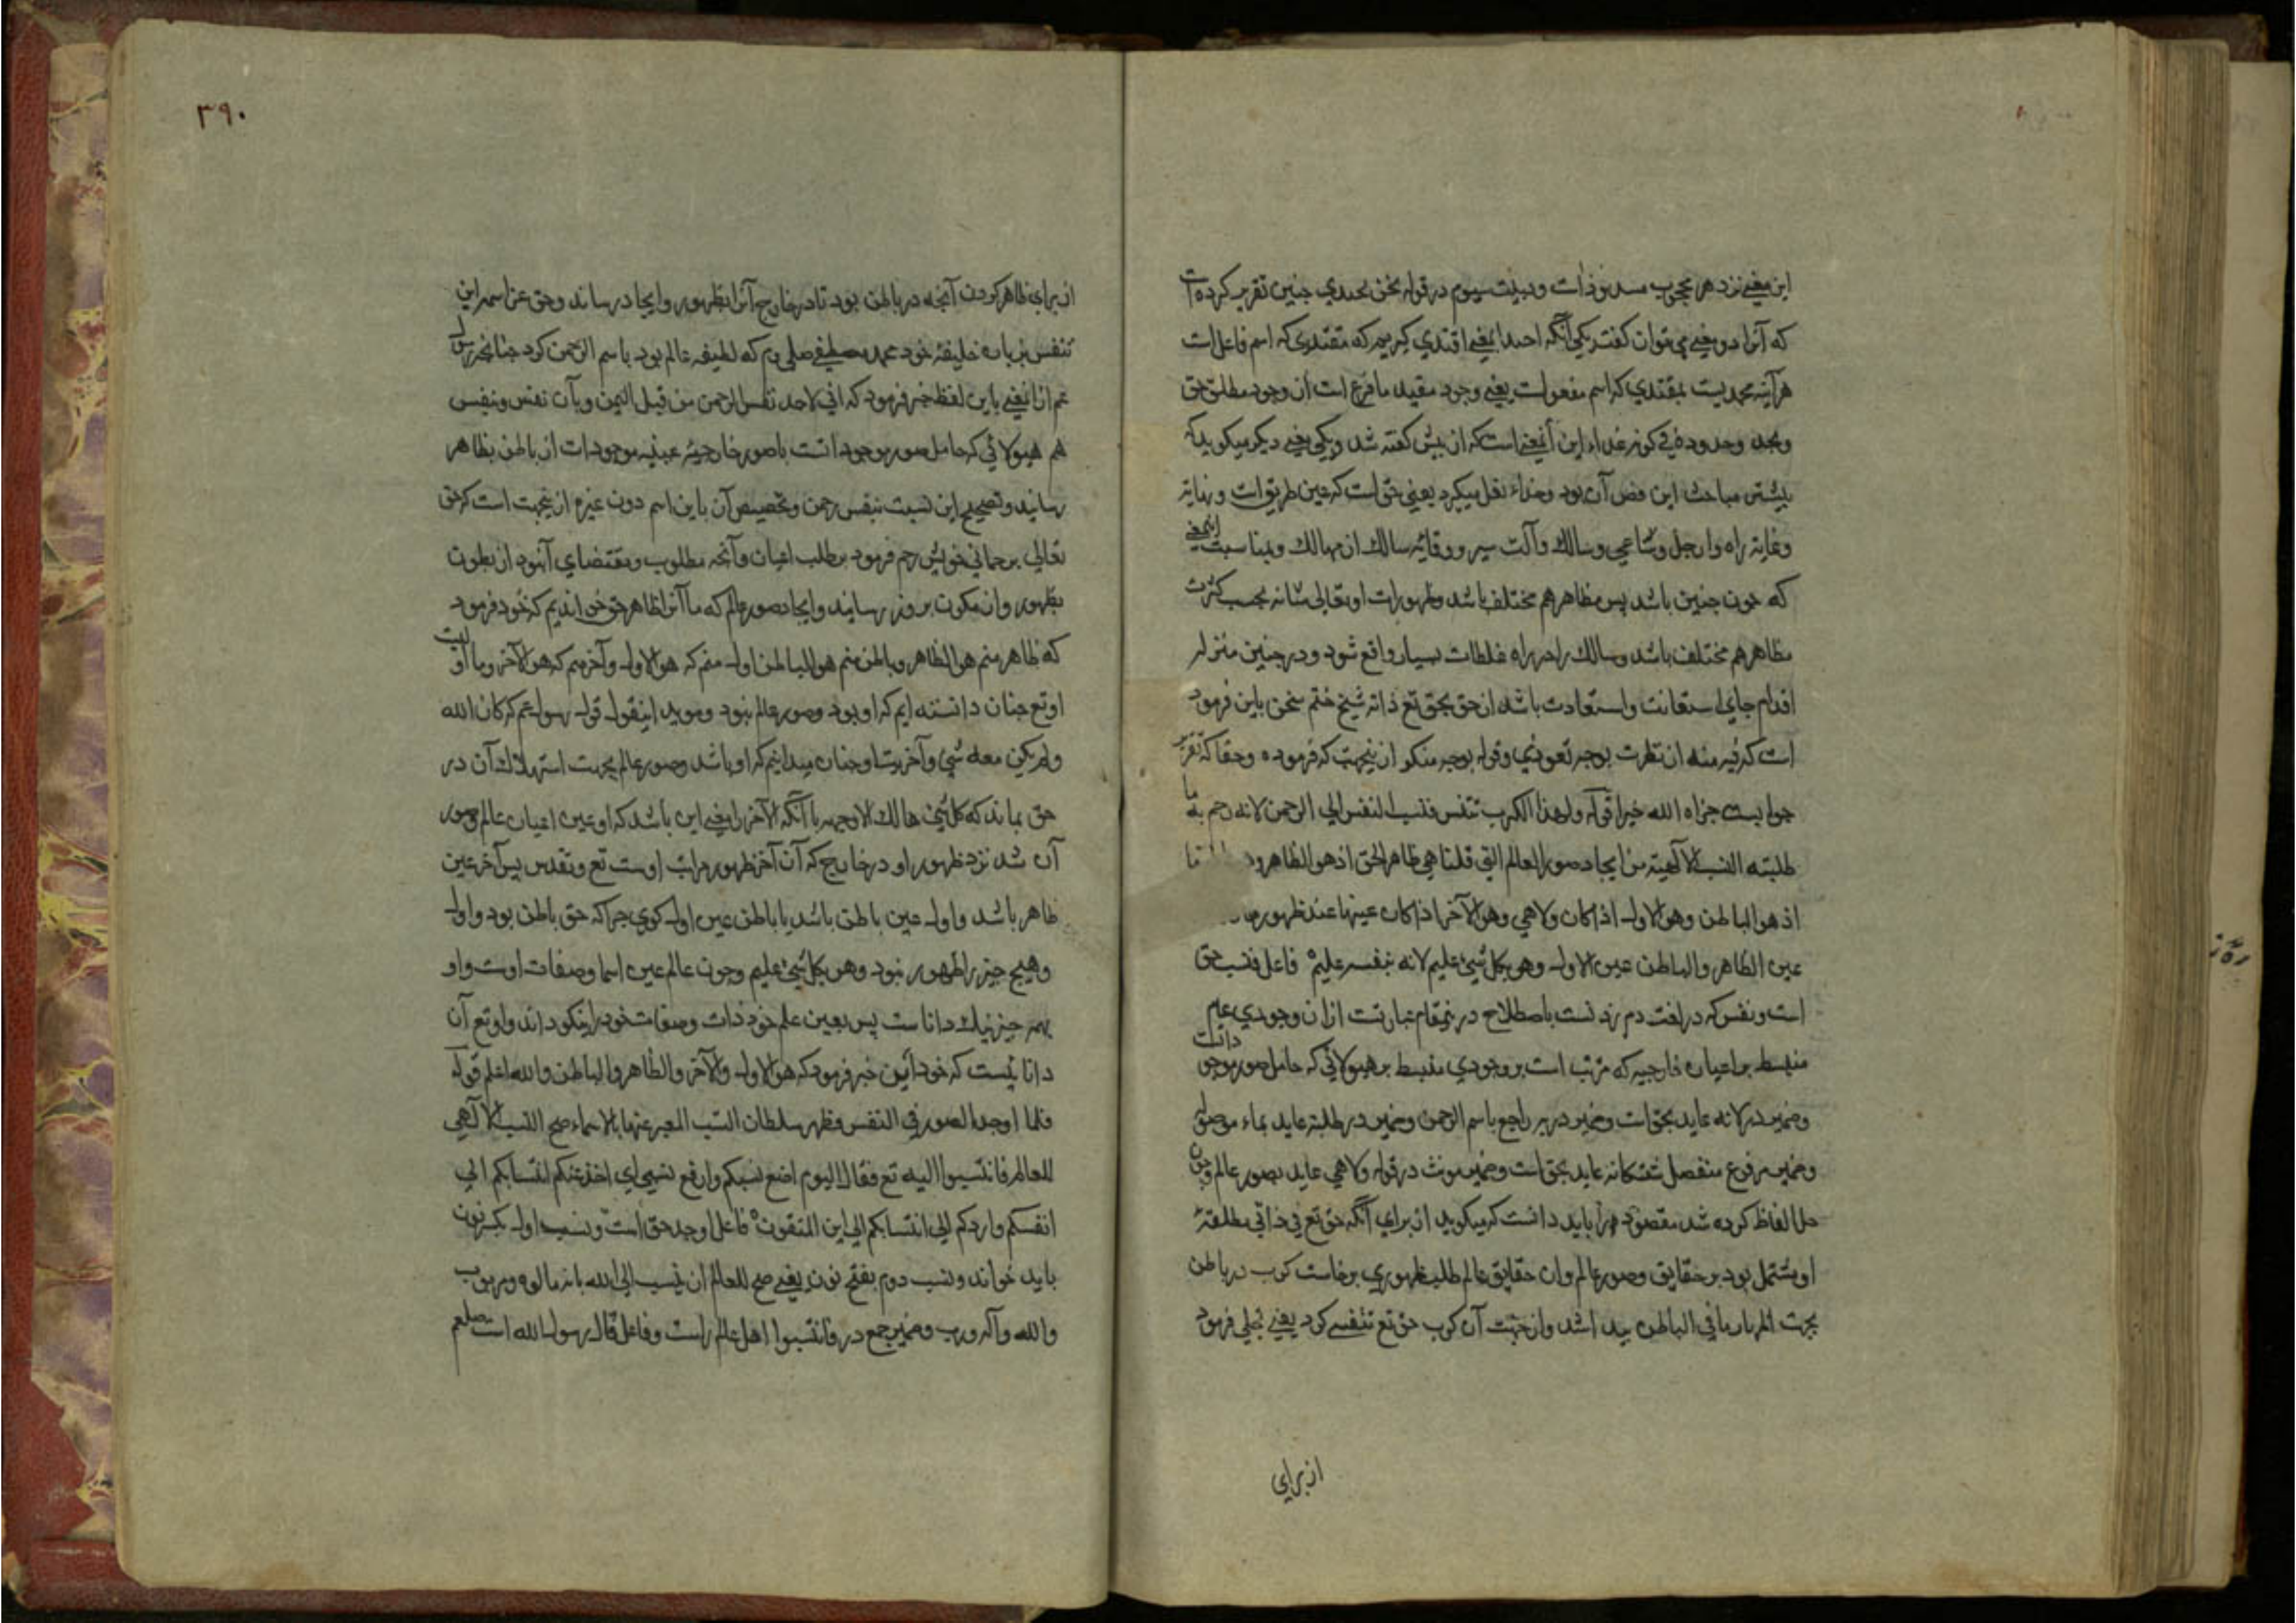 این معنی نزد هر محجوب مسدود ذات و دبیت سیوم در قوله نحن نحتدي جنین تقریر کرده است
که آنرا دو معنی می‌توان کفت یکی آنکه احتدا بمعنی اقتدی کیریم که مقتدی که اسم فاعل است
هرآینه محدیست بمقتدي که اسم مفعولست یعنی وجود مقید ما فرع است از وجود مطلق حق
این آنمعنی است که از بیش کفته شد و یکی معنی دیکر میکوید که
بیشتر مباحث این فص آن بود وحذاء نقل میکرد یعنی حق است که عین طریق است و نهایة
وغایة راه و ارجل وساعی وسالک وآلت سیر و وقایة سالک از مهالک وبمناسبت اینمعنی
که جون جنین باشد بس مظاهر هم مختلف باشد وظهورات او تعالی شانه بحسب کثرت
مظاهر هم مختلف باشد وسالک را در راه غلطات بسیار واقع شود و در جنین منزلة
اقدام جای استعانت واستعاذت باشد از حق بحق تع ذاته شیخ ختم سخن باین فرموده
است که فیه منه ان نظرت بوجه تعوذي وقوله بوجه منکر ازینجهت که فرموده وحقا که تقریر
جوابیست جزاه الله خیرا قوله ولهذا الکرب تنفس فنسب النفس الی الرحمن لانه رحم به ما
طلبته النسب الآلهیة من ایجاد صور العالم التی قلنا هی ظاهر الحق اذ هو الظاهر و
اذ هو الباطن وهو الاول اذ کان ولا هی وهو الآخر اذ کان عینها عند ظهورها
عین الظاهر والباطن عین الاول وهو بکل شیء علیم لانه بنفسه علیم فاعل فنسب حق
است ونفس که در لغت دم زدنست باصطلاح درینمقام عبارتست ازان وجودي عام
منبسط بر اعیان خارجیه که مرتب است بر وجودي منبسط بر هیولائی که حامل صور موجودانست
وضمیر در لانه عاید بحق است وضمیر در به راجع باسم الرحمن وضمیر در طلبته عاید بماء موصله
وضمیر مرفوع منفصل عاید بحق است وضمیر مونث در قوله ولا هی عاید بصور عالم وجون
حل الفاظ کرده شد مقصود را باید دانست که میکوید از برای آنکه حق تع فی ذاتی مطلقة
او مشتمل بود بر حقایق وصور عالم وان حقایق عالم طلب ظهوری برخاست کرب در باطن
بجهت اظهار ما فی الباطن بیدا شد وازجهت آن کرب حق تع تنفسی کرد یعنی تجلی فرمود
از برای
۳۹۰
از برای ظاهر کردن آنجه در باطن بود تا در خارج آنرا بظهور وایجاد رساند وحق عز اسمه این
تنفس بزبان خلیفۀ خود محمد مصطفی صلی که لطیفۀ عالم بود باسم الرحمن کرد جنانجه رسول
عم ازانمعنی باین لفظ خبر فرمود که انی لاجد نفس الرحمن من قبل الیمن وبآن تنفس ونفس
هم هیولائی که حامل صور موجوداتست باصور خارجیۀ عینیه موجودات از باطن بظاهر
رسانید وتصحیح این نسبت بنفس رحمن وتخصیص آن باین اسم دون غیره ازینجهت است که حق
تعالی برحمانی خویش رحم فرمود بر طلب اعیان وآنجه مطلوب ومقتضای آنبود از بطون
بظهور واز مکون ببروز رسانید وایجاد صور عالم که ما آنرا ظاهر حق خواندیم که خود فرمود
که ظاهر منم هو الظاهر وباطن منم هو الباطن اول منم که هو الاول وآخر منم که هو الآخر وما اولیت
او تع جنان دانسته‌ایم که او بود وصور عالم نبود وموید اینقول قول رسول عم که کان الله
ولم یکن معه شيء وآخریت او جنان میدانیم که او باشد وصور عالم بجهت استهلاک آن در
حق نماند که کل شيء هالک الا وجهه یا آنکه الآخر را معنی این باشد که او عین اعیان عالم وصور
آن شد نزد ظهور او در خارج که آن آخر ظهور مراتب اوست تع وتقدس بس آخر عین
ظاهر باشد واول عین باطن باشد یا باطن عین اول کوی جراکه حق باطن بود واول
وهیچ جیز را ظهور نبود وهو بکل شيء علیم وجون عالم عین اسما وصفات اوست واو
بهمه جیز نیک داناست بس بعین علم خود ذات وصفات خود را نیکو داند واو تع آن
داناییست که خود ازین خبر فرمود که هو الاول والآخر والظاهر والباطن والله اعلم قوله
فلما اوجد الصور فی النفس وظهر سلطان النسب المعبر عنها بالاسماء صح النسب الآلهی
للعالم فانتسبوا الیه تع فقال الیوم اضع نسبکم وارفع نسبی ای اخذ عنکم انتسابکم الی
انفسکم واردکم الی انتسابکم الی این المتقون فاعل اوجد حق است ونسب اول بکسر نون
باید خواند ونسب دوم بفتح نون یعنی صح للعالم ان ینسب الی الله بانه مالوه ومربوب
والله وآله ورب وضمیر جمع در فانتسبوا اهل عالم راست وفاعل قال رسول الله است صلعم